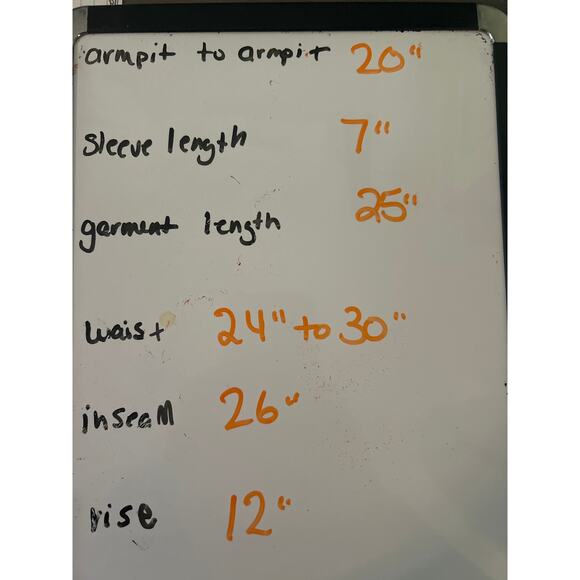 armpit to armpit 20"
sleeve length 7"
garment length 25"
waist 24" to 30"
inseam 26"
rise 12"